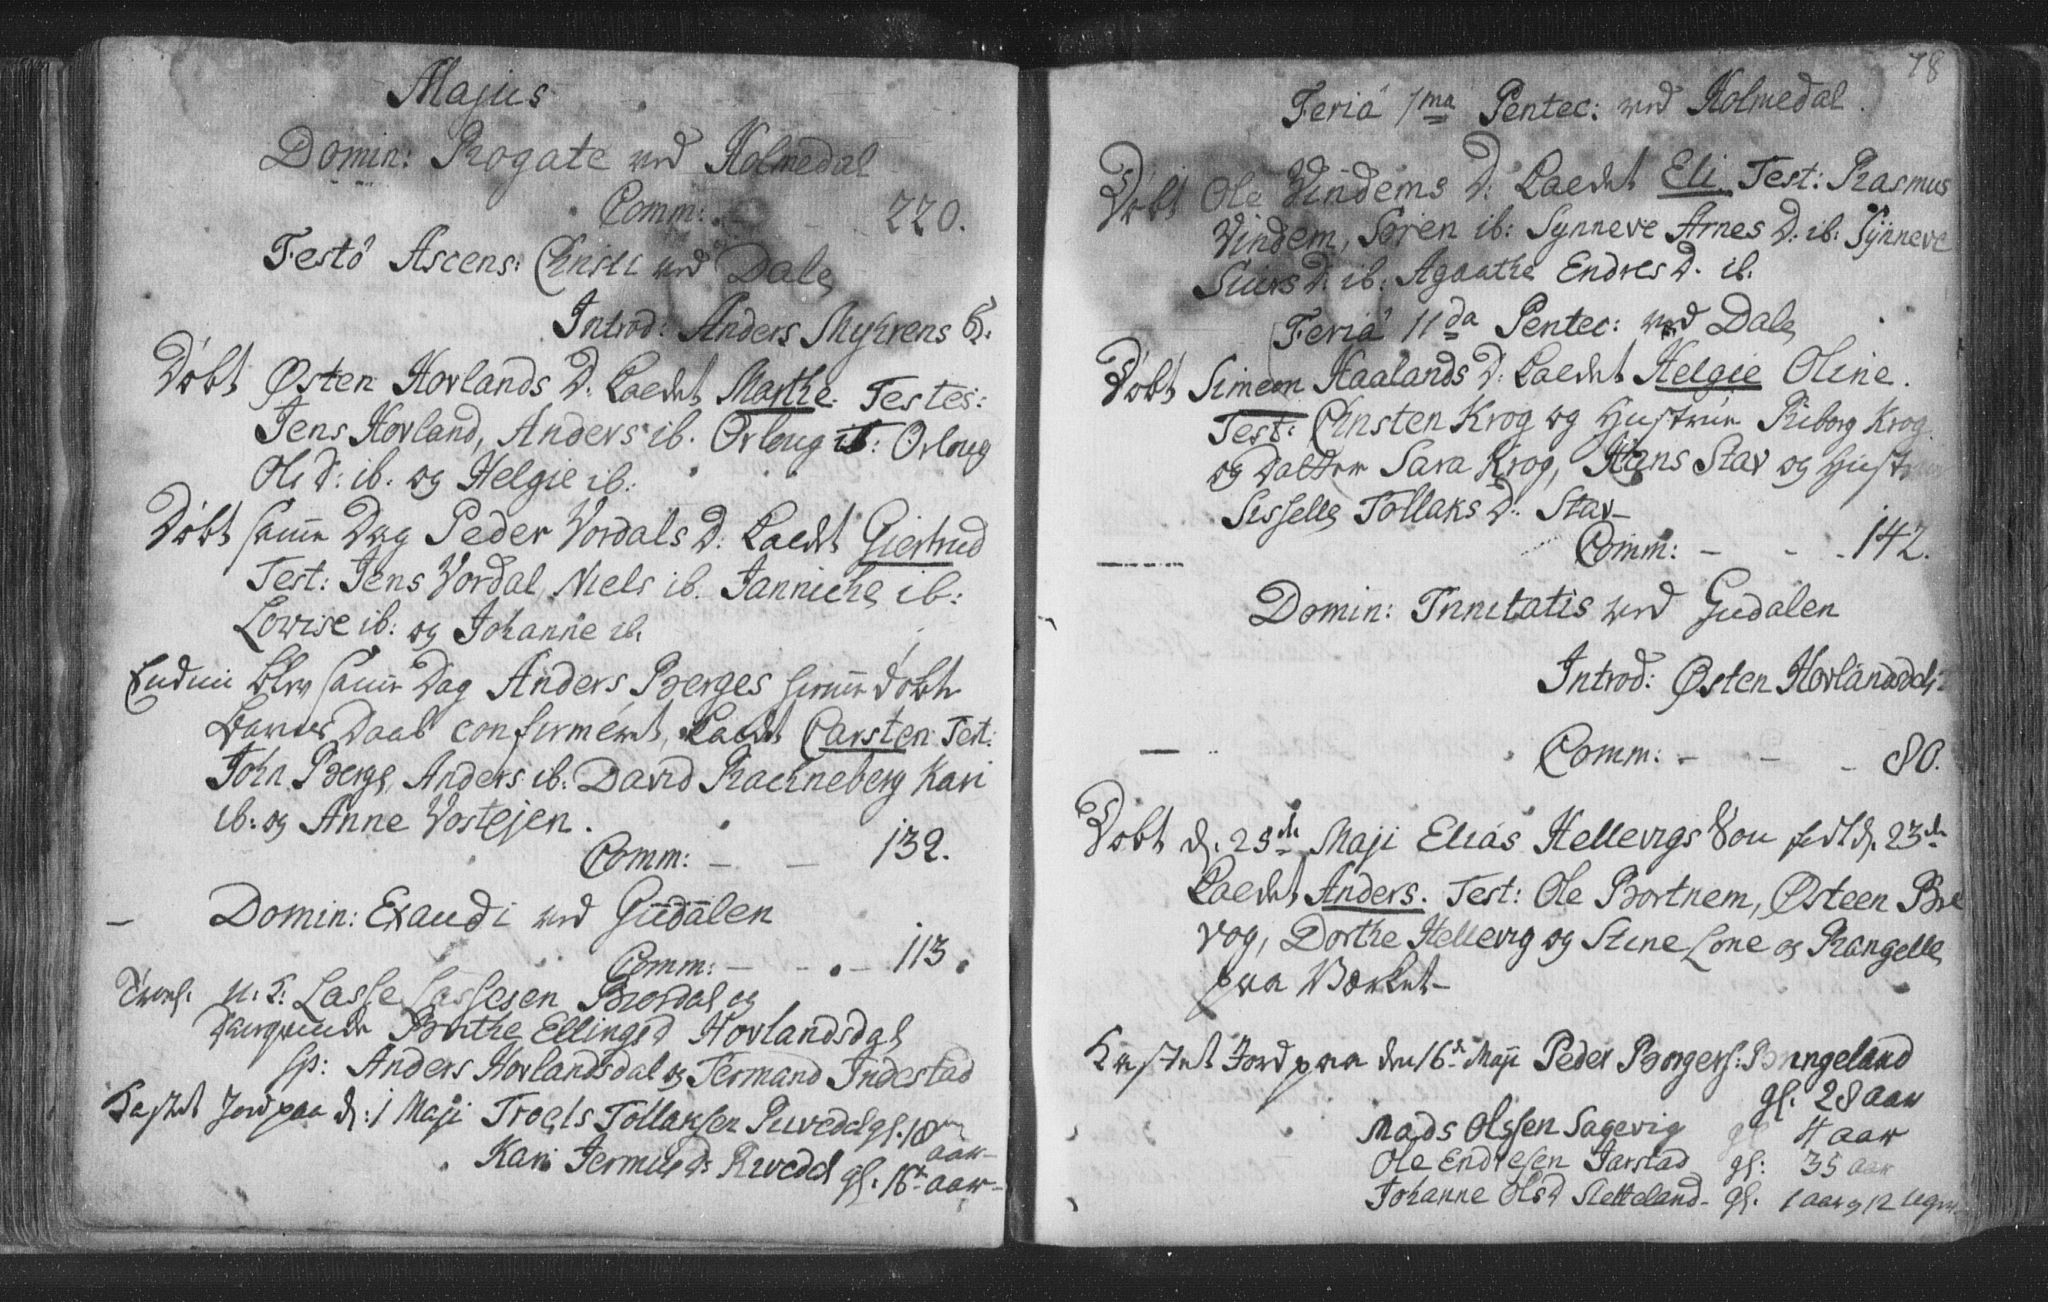 Majus
Domin: Rogate ved Holmedal
Comm: 220.
Festo Ascens: Christi ved Dale
Introd: Anders Myhrens K:
Døbt Østen Hovlands D. kaldet Marthe. Testes:
Jens Hovland, Anders ib. Orloug ib: Orloug
Ols d: ib. og Helgie ib:
Døbt samme Dag Peder Vordals D: kaldet Giertrud
Test: Jens Vordal, Niels ib. Janniche ib:
Lowise ib: og Johanne ib.
Endnu blev samme Dag Anders Berges hjemme døbte
Barns Daab confirmeret, kaldet Carsten Test:
John Berge, Anders ib: David Rachneberg Kari
ib: og Anne Vostejen.
Comm: 132.
Domin: Exaudi ved Gudalen
Comm: 113.
Trol. u. K: Lasse Lassesen Bordal og
Berthe Ellingsd Hovlandsdal
Sp: Anders Hovlandsdal og Termand Indestad
Kastet Jord paa d: 1 Maji Troels Tollaksen Rivedal gl. 18
aar
Kari Jermunds D: Rivedal gl. 16 aar
78
Feria 1ma Pentec: ved Holmedal.
Døbt Ole Vindems D: kaldet Eli. Test: Rasmus
Vindem, Søren ib: Synneve Arnes D: ib: Synneve
Siurs D: ib: Agaathe Endres D. ib.
Feria 11da Pentec: ved Dale
Døbt Simeon Haalands D: kaldet Helgie Oline.
Test: Christen Krog og Hustrue Riborg Krog
og Datter Sara Krog, Hans Stav og Hustrue
Sisselle Tollaks D: Stav
Comm: 142.
Domin: Trinitatis ved Gudalen
Introd: Østen Hovlands K:
Comm: 80.
Døbt d. 25de Maji Elias Hellevigs Søn fød d. 23de
kaldet Anders. Test: Ole Bortnem, Østeen Bre
vog, Dorthe Hellevig og Stine Lone og Rangelle
paa Værket
Kastet Jord paa den 16de Maji Peder Borgers: Bringeland
gl. 28 aar
Mads Olssen Sagevig gl 4 aar
Ole Endresen Jarstad gl: 35 aar
Johanne Olsd Sletteland gl. 1 aar og 12 uger